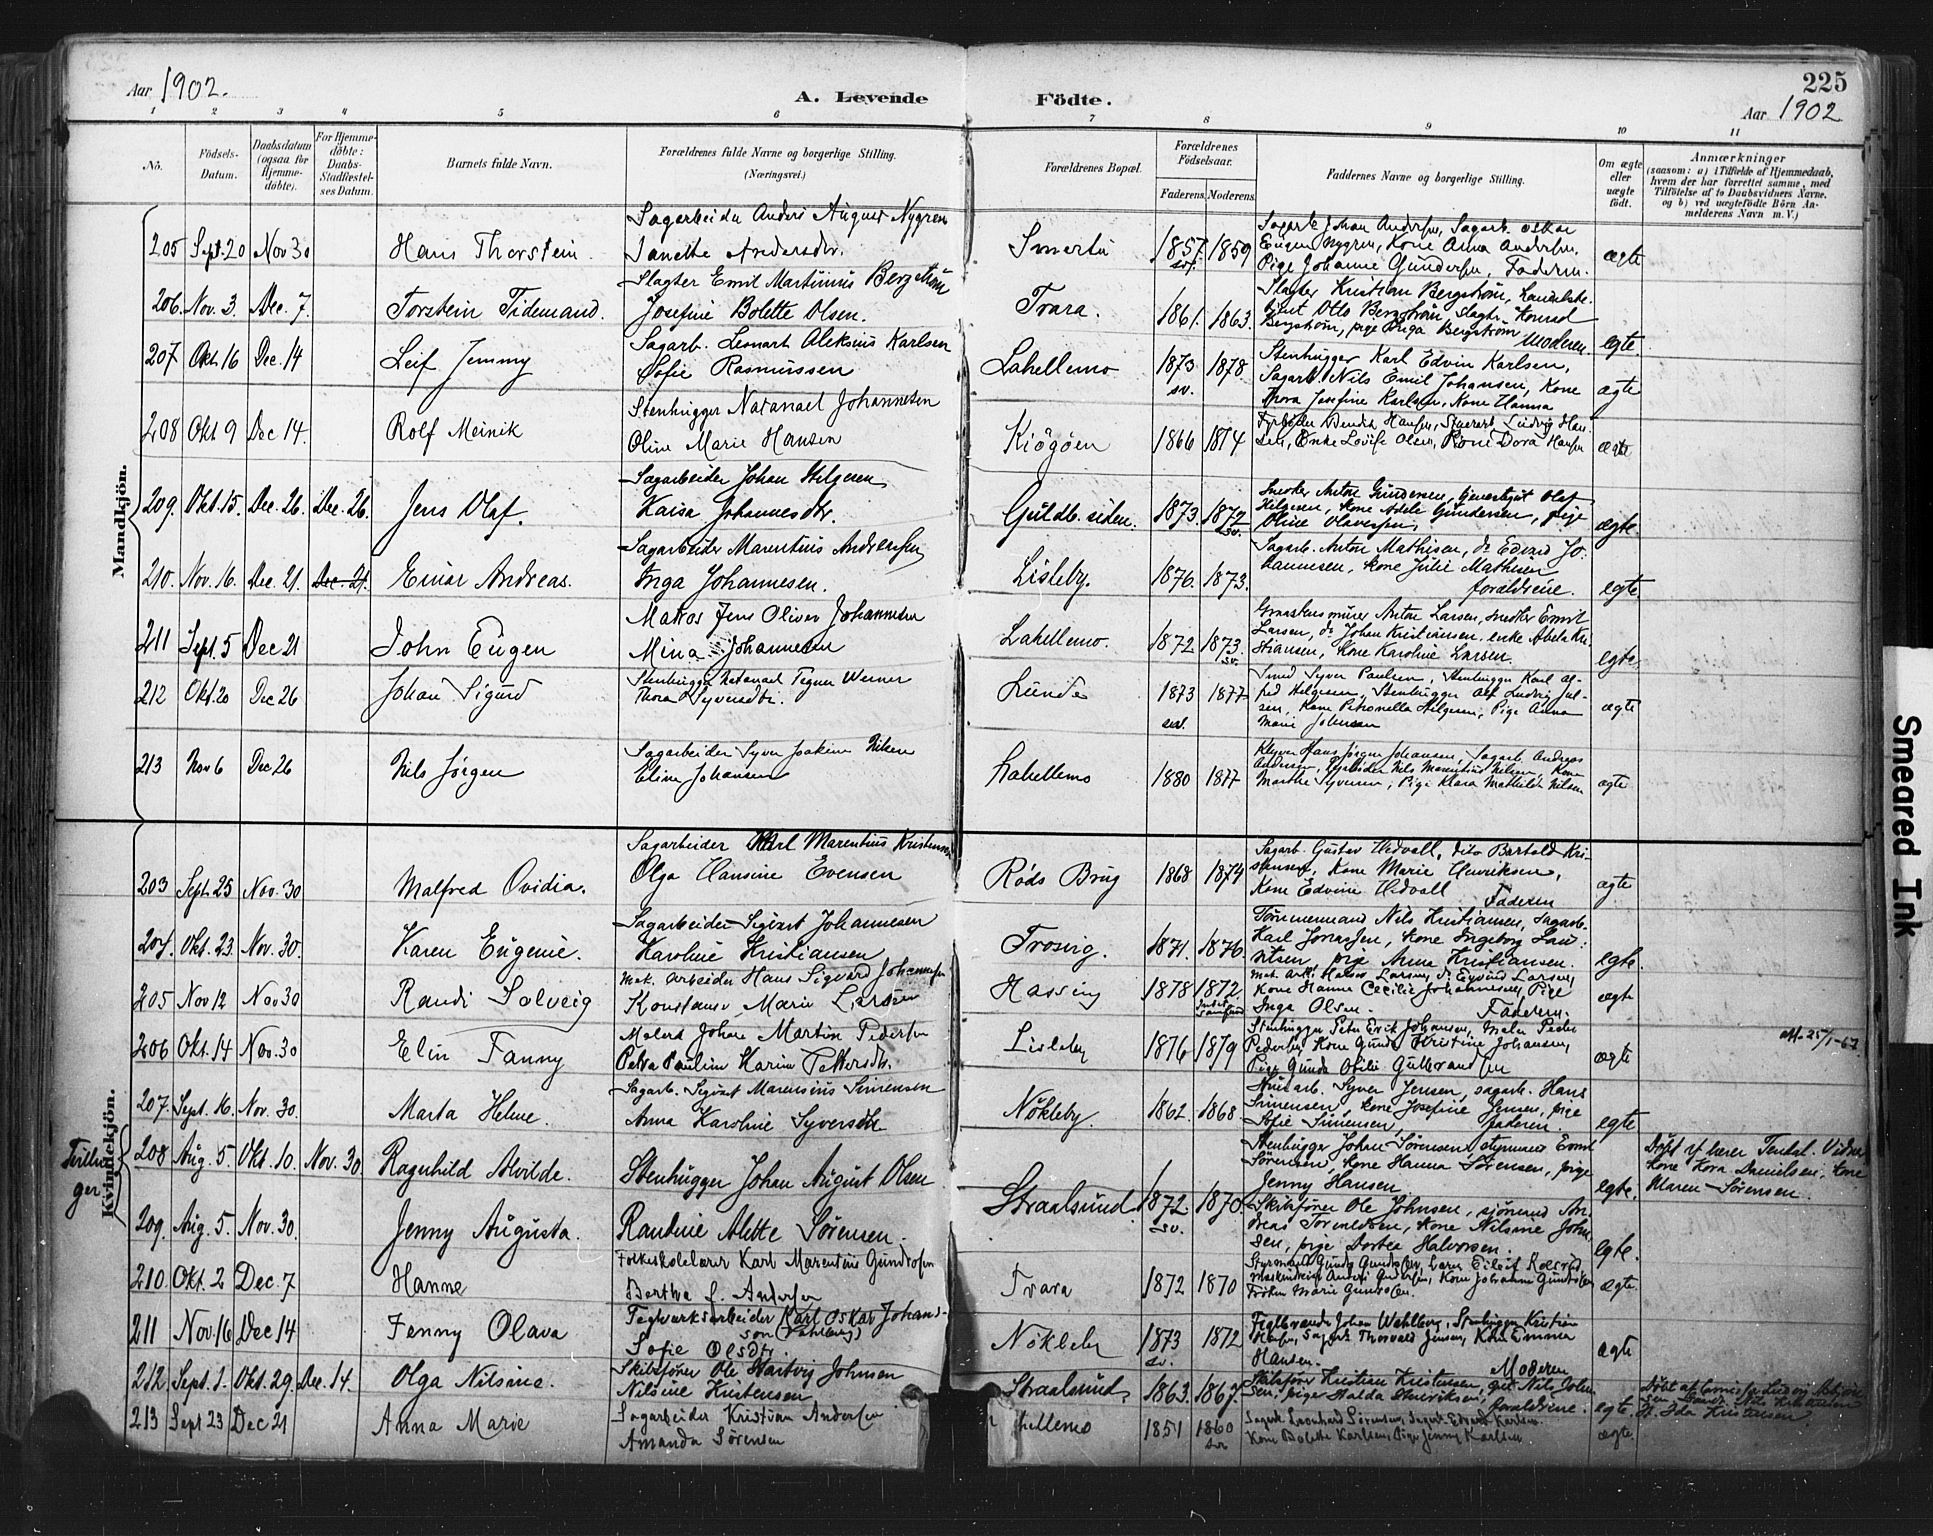 225
Aar 1902.
A. Levende Födte.
Aar 1902
1 2 3 4 5 6 7 8 9 10 11
No.
Födsels-Datum.
Daabsdatum (ogsaa for Hjemmedöbte).
For Hjemmedöbte: Daabs-Stadfæstelses Datum.
Barnets fulde Navn.
Forældrenes fulde Navne og borgerlige Stilling.
(Næringsvei.)
Forældrenes Bopæl.
Forældrenes Födselsaar.
Faderens. Moderens.
Faddernes Navne og borgerlige Stilling.
Om ægte eller uægte födt.
Anmærkninger
(saasom: a) i Tilfælde af Hjemmedaab, hvem der har forrettet samme, med Tilföielse af to Daabsvidners Navne, og b) ved uægtefödte Börn Anmelderens Navn m. V.)
Mandkjön.
205 Sept. 20 Nov 30 Hans Thorstein. Sagarbeider Anders August Nygren
Janette Andersdtr. 1857 sv. 1859 Sagarb. Johan Andersen, Sagarb. Oskar
Eugen Nygren, Kone Anna Andersen,
Pige Johanne Gundersen, Faderen. ægte
206. Nov. 3. Dec. 7. Torstein Tidemand. Slagter Emil Martinius Bergstrøm
Josefine Bolette Olsen. Trara. 1861. 1863. Slagter Kristian Bergstrøm,
Otto Bergstrøm, Slagter Konrad
Bergstrøm, pige Bergstrøm Moderen. egte.
207 Okt 16 Dec. 14 Leif Jemmy Sagarb. Leonart Aleksius Karlsen
Sofie Rasmussen Lahellemo 1873 sv. 1878 Stenhugger Karl Edvin Karlsen,
Sagarb. Nils Emil Johansen, Kone
Thora Josefine Karlsen, Kone Hanna ægte
208 Okt 9 Dec 14. Rolf Meinik Stenhugger Natanael Johannesen
Oline Marie Hansen Kjögöen 1866 1874 Fyrbøder Hansen, Styrers Ludvig Hansen,
Enke Lovise Olsen, Kone Dora Hansen ægte
209. Okt. 15. Dec. 26. Dec. 26. Jens Olaf. Sagarbeider Johan Helgesen
Kaisa Johannesdtr. Guldb. siden. 1873. 1872 sv. Snedker Anton Gundersen, Olaf
Helgesen, Kone Adele Gundersen, pige
Oline Olavesen, ægte.
210. Nov. 16. Dec. 21. Dec. 21. Einar Andreas. Sagarbeider Marentius Andreasen
Inga Johannesen. Lisleby. 1876. 1873. Sagarb. Anton Mathisen, do Edvard Johannesen,
Kone Julie Mathisen
foraldrene. egte.
211 Sept. 5 Dec 21 John Eugen Matros Jens Oliver Johannesen
Mina Johannesen Lahellemo. 1872 1873. sv. Graastensmurer Anton Larsen, Snedker Emil
Larsen, do Johan Kristiansen, enke Abela Kristiansen,
Kone Karoline Larsen. egte.
212 Okt. 20 Dec 26 Johan Sigurd Stenhugger Natanael Tegner Werner
Thora Syversdtr. Lunde 1873 sv. 1877 Smed Syver Paulsen, Stenhugger Karl Alfred
Helgesen, Stenhugger Alf Ludvig Julsen,
Kone Petronella Helgesen, Pige Anna
Marie Johansen ægte
213 Nov 6 Dec 26 Nils Jörgen Sagarbeider Syver Joakim Nilsen
Eline Johansen Lahellemo 1880 1877 Kløver Hans Jørgen Johansen, Sagarb. Andreas
Andersen, Nils Marentius Nilsen, Kone
Marthe Syversen, Pige Klara Mathilde Nilsen ægte
Kvindekjön.
203 Sept. 25 Nov. 30 Malfred Ovidia. Sagarbeider Karl Marentius Kristensen
Olga Hansine Evensen Röds Brug 1868 1874 Sagarb. Gustav Hedvall, dito Bartold Kristiansen,
Kone Marie Henriksen,
Kone Edvine Hedvall Faderen ægte
204. Okt. 23. Nov. 30. Karen Eugenie. Sagarbeider Sigvart Johannesen
Karoline Kristiansen Trosvig. 1871. 1876. Tømmermand Nils Kristiansen, Sagarb.
Karl Jonassen, Kone Ingeborg Lauritsen,
pige Anna Kristiansen. egte.
205 Nov 12 Nov 30 Randi Solveig Mek. Arbeider Hans Sigvar Johannesen
Konstanse Marie Larsen Hassing 1878 1872. Mek. Arb. Larsen, do Eyvind Larsen,
Kone Hanne Cecilie Johannesen, Pige
Inga Olsen. Faderen. ægte
206 Okt. 14 Nov. 30 Elin Fanny Malers Johan Martin Pedersen
Petra Pauline Karine Pettersdtr. Lisleby 1876 1879 Stenhugger Peter Erik Johansen, Maler Peder
Pedersen, Kone Gunda Kristine Johansen,
Pige Gunda Otilie Gulbrandsen ægte
25/1-62
207. Sept. 16. Nov. 30. Marta Helene. Sagarb. Sigvart Marensius Simensen
Anna Karoline Syversdtr Nökleby. 1862. 1868. Syver Jensen, sagarb. Hans
Simensen, Kone Josefine Jensen, pige
Sofie Simensen, faderen. egte
Tvillinger
208 Aug. 5. Okt. 10. Nov. 30 Ragnhild Alvilde. Stenhugger Johan August Olsen
Straalsund 1872. sv. 1870. Stenhugger Johan Sörensen, styrmand Emil
Sörensen, Kone Hanna Sörensen, pige
Jenny Hansen egte. Döbt af lærer Vidner
Kone Kora Danielsen, Kone
Maren Sörensen.
209. Aug. 5. Nov. 30. Jenny Augusta. Randine Alette Sörensen. Skibsförer Ole Johnsen, sjömand
Kone Nilsine Johnsen,
pige Dortea Halvorsen. egte.
210. Okt. 2 Dec. 7 Hanne Folkeskolelærer Karl Marentius Gundersen
Bertha L. Andersen Trara 1872 1870 Styrmand Gunds Gundersen, Lærer Eilert Kolsrud,
Maskindreier Anders Andersen, Kone Johanne Gundersen,
Frøken Marie Gundersen. ægte.
211 Nov. 16 Dec 14 Fenny Olava Teglverksarbeider Karl Oskar Johansson
(Dahlberg)
Sofie Olsdtr. Nökleby 1873 sv. 1872 Teglbrænder Johan Wahlberg, Stenhugger Kristian
Olsen, Sagarb. Thorvald Jensen, Kone Emma
Hansen. Moderen ægte
212 Sept. 1. Okt. 29. Dec. 14. Olga Nilsine. Skibsförer Ole Hartvig Johnsen
Nilsine Kristensen Straalsund. 1863. 1867. Skibsförer Kristian Kristensen, gut Nils Johnsen,
pige Halda Henriksen, foraldrene. egte. Döbt af Ludvig
Nils Kristensen
Ida Kristensen
213 Sept 23 Dec 21 Anna Marie Sagarbeider Kristian Andersen
Amanda Sörensen hellemo 1851 1860 sv. Sagarb. Leonhard Sörensen, Sagarb. Edvard Karlsen,
Kone Bolette Karlsen, Pige Jenny Karlsen ægte.
Smeared Ink